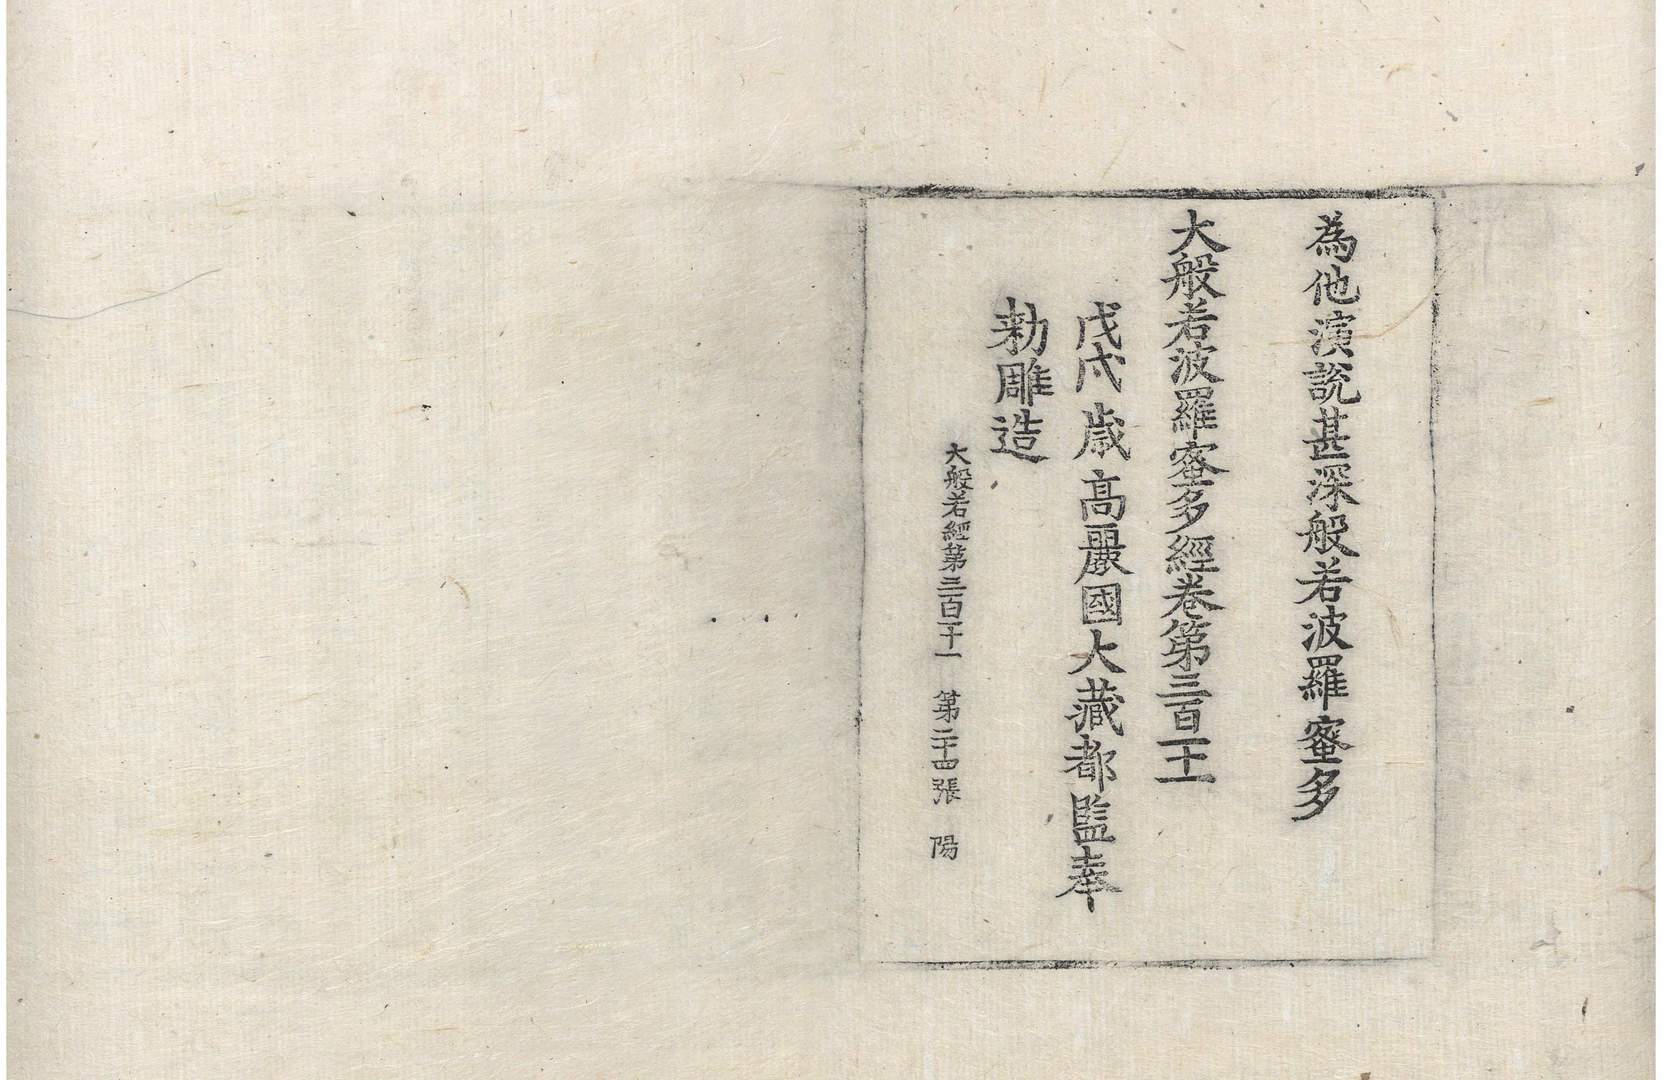 為他演說甚深般若波羅蜜多
大般若波羅蜜多經卷第三百一十一
戊戌歲高麗國大藏都監奉
勑雕造
大般若經第三百一十一 第二十四張 陽